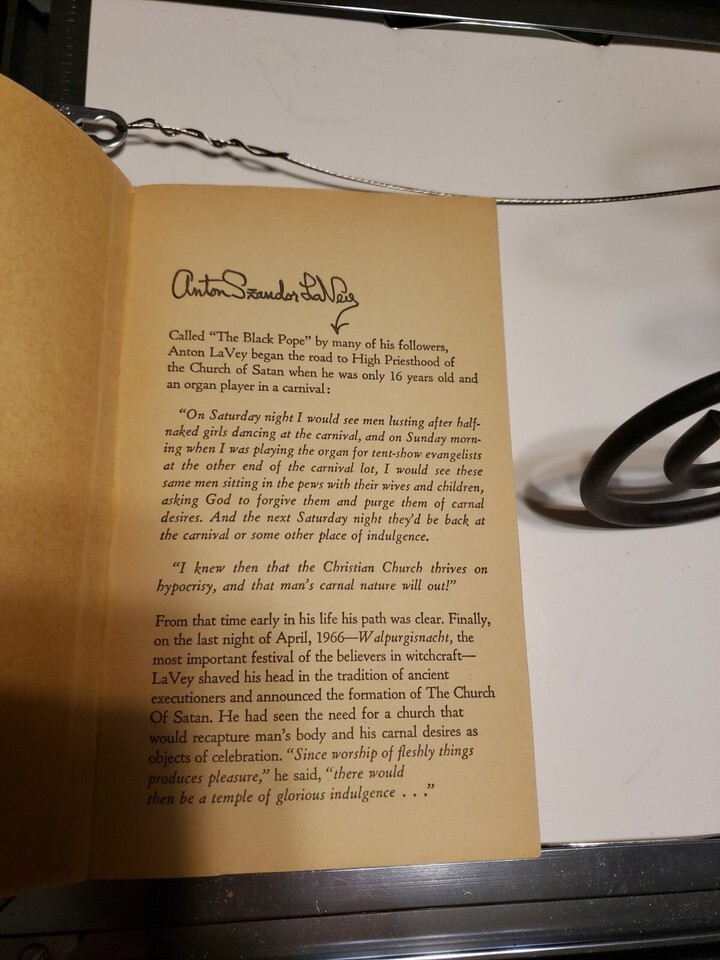 Anton Szandor LaVey
Called "The Black Pope" by many of his followers,
Anton LaVey began the road to High Priesthood of
the Church of Satan when he was only 16 years old and
an organ player in a carnival:
"On Saturday night I would see men lusting after half-
naked girls dancing at the carnival, and on Sunday morn-
ing when I was playing the organ for tent-show evangelists
at the other end of the carnival lot, I would see these
same men sitting in the pews with their wives and children,
asking God to forgive them and purge them of carnal
desires. And the next Saturday night they'd be back at
the carnival or some other place of indulgence.
"I knew then that the Christian Church thrives on
hypocrisy, and that man's carnal nature will out!"
From that time early in his life his path was clear. Finally,
on the last night of April, 1966—Walpurgisnacht, the
most important festival of the believers in witchcraft—
LaVey shaved his head in the tradition of ancient
executioners and announced the formation of The Church
Of Satan. He had seen the need for a church that
would recapture man's body and his carnal desires as
objects of celebration. "Since worship of fleshly things
produces pleasure," he said, "there would
then be a temple of glorious indulgence . . ."